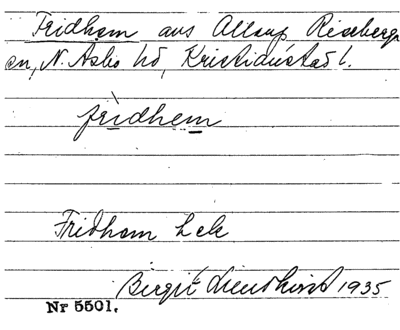 Fridhem avs Allarp Riseberga
sn, N. Åsbo hd, Kristianstad l.
frìdhem
Fridhem Lek
Birgit 1935
Nr 5501.